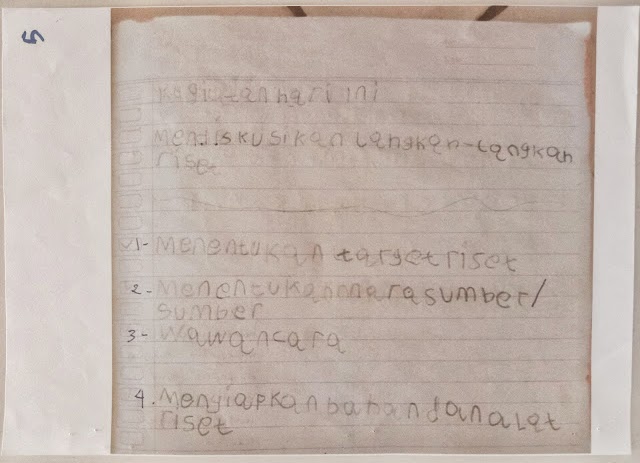 5
kegi-tanhari ini
mendiskusikan langkah-langkah
riset
1- Menentukan target riset
2- Menentukannarasumber/
sumber
3- Wawancara
4. Menyiapkanbahandanalat
riset